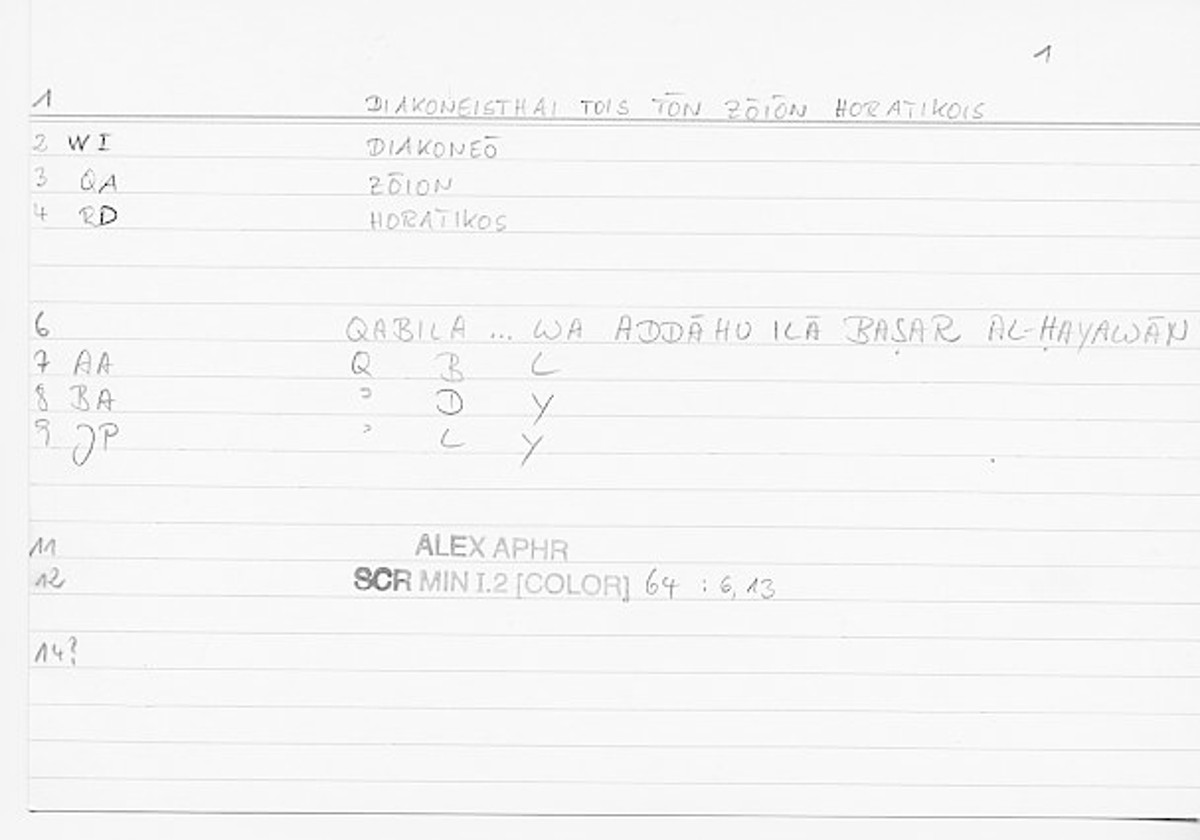 1
1 DIAKONEISTHAI TOIS TŌN ZŌIŌN HORATIKOIS
2 WI DIAKONEŌ
3 QA ZŌION
4 RD HORATIKOS
6 QABILA ... WA ADDĀHU ILĀ BAṢAR AL-ḤAYAWĀN
7 AA Q B L
8 BA ʾ D Y
9 JP ʾ L Y
11 ALEX APHR
12 SCR MIN I.2 [COLOR] 64 : 6,13
14?